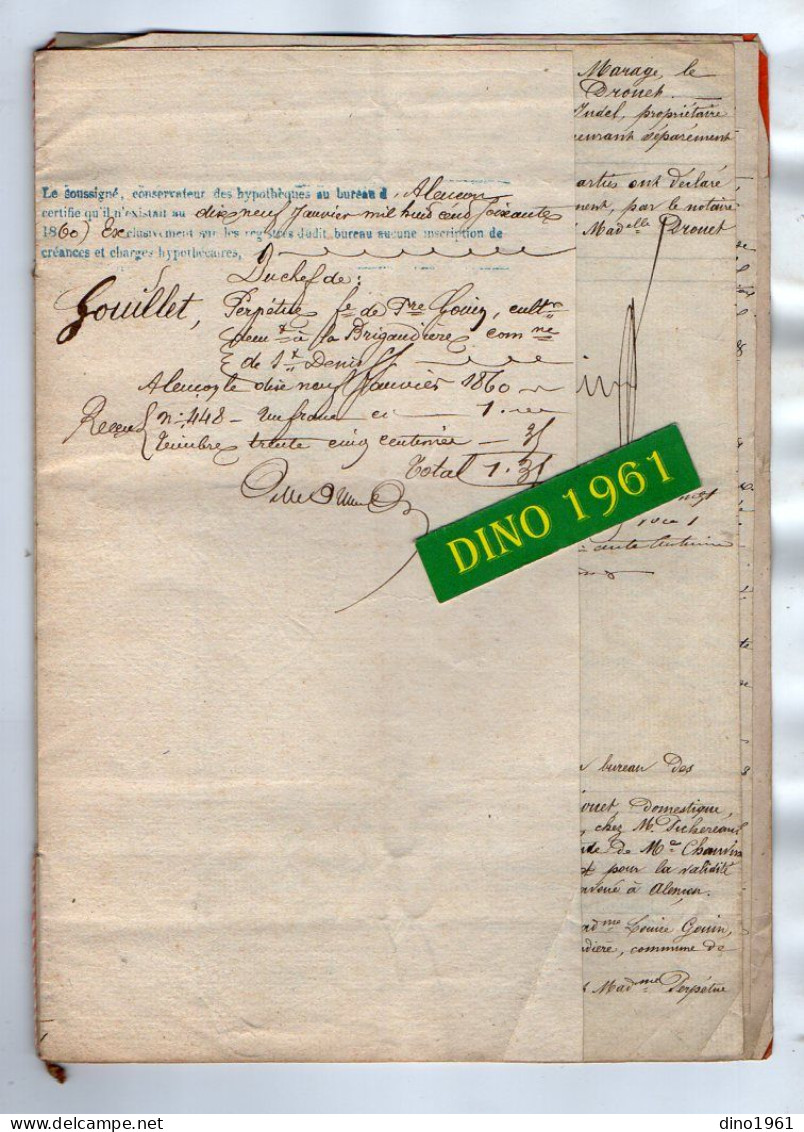 Le soussigné, conservateur des hypothèques au bureau d'Alençon
certifie qu'il n'existait au dix neuf Janvier mil huit cent soixante
1860) Exclusivement sur les registres dudit bureau aucune inscription de
créances et charges hypothécaires,
Du chef de:
Gouillet, Perpétue fe de Pre Gouin, cultr
demt à la Brigaudière, comne
de St Denis
Alençon le dix neuf Janvier 1860
Reçu { n: 448 - un franc ci 1.
Timbre trente cinq centimes 35
Total 1.35
DINO 1961
Marage, le
Drouet.
Indel, propriétaire
eurant séparément
arties ont déclaré
ment, par le notaire
Madelle Drouet
bureau des
ouet, domestique,
chez M. Pichereau
de Me Chauvin
pour la validité
avoué à Alençon.
adme Louise Gouin,
dière, commune de
Madme Perpétue
dino1961